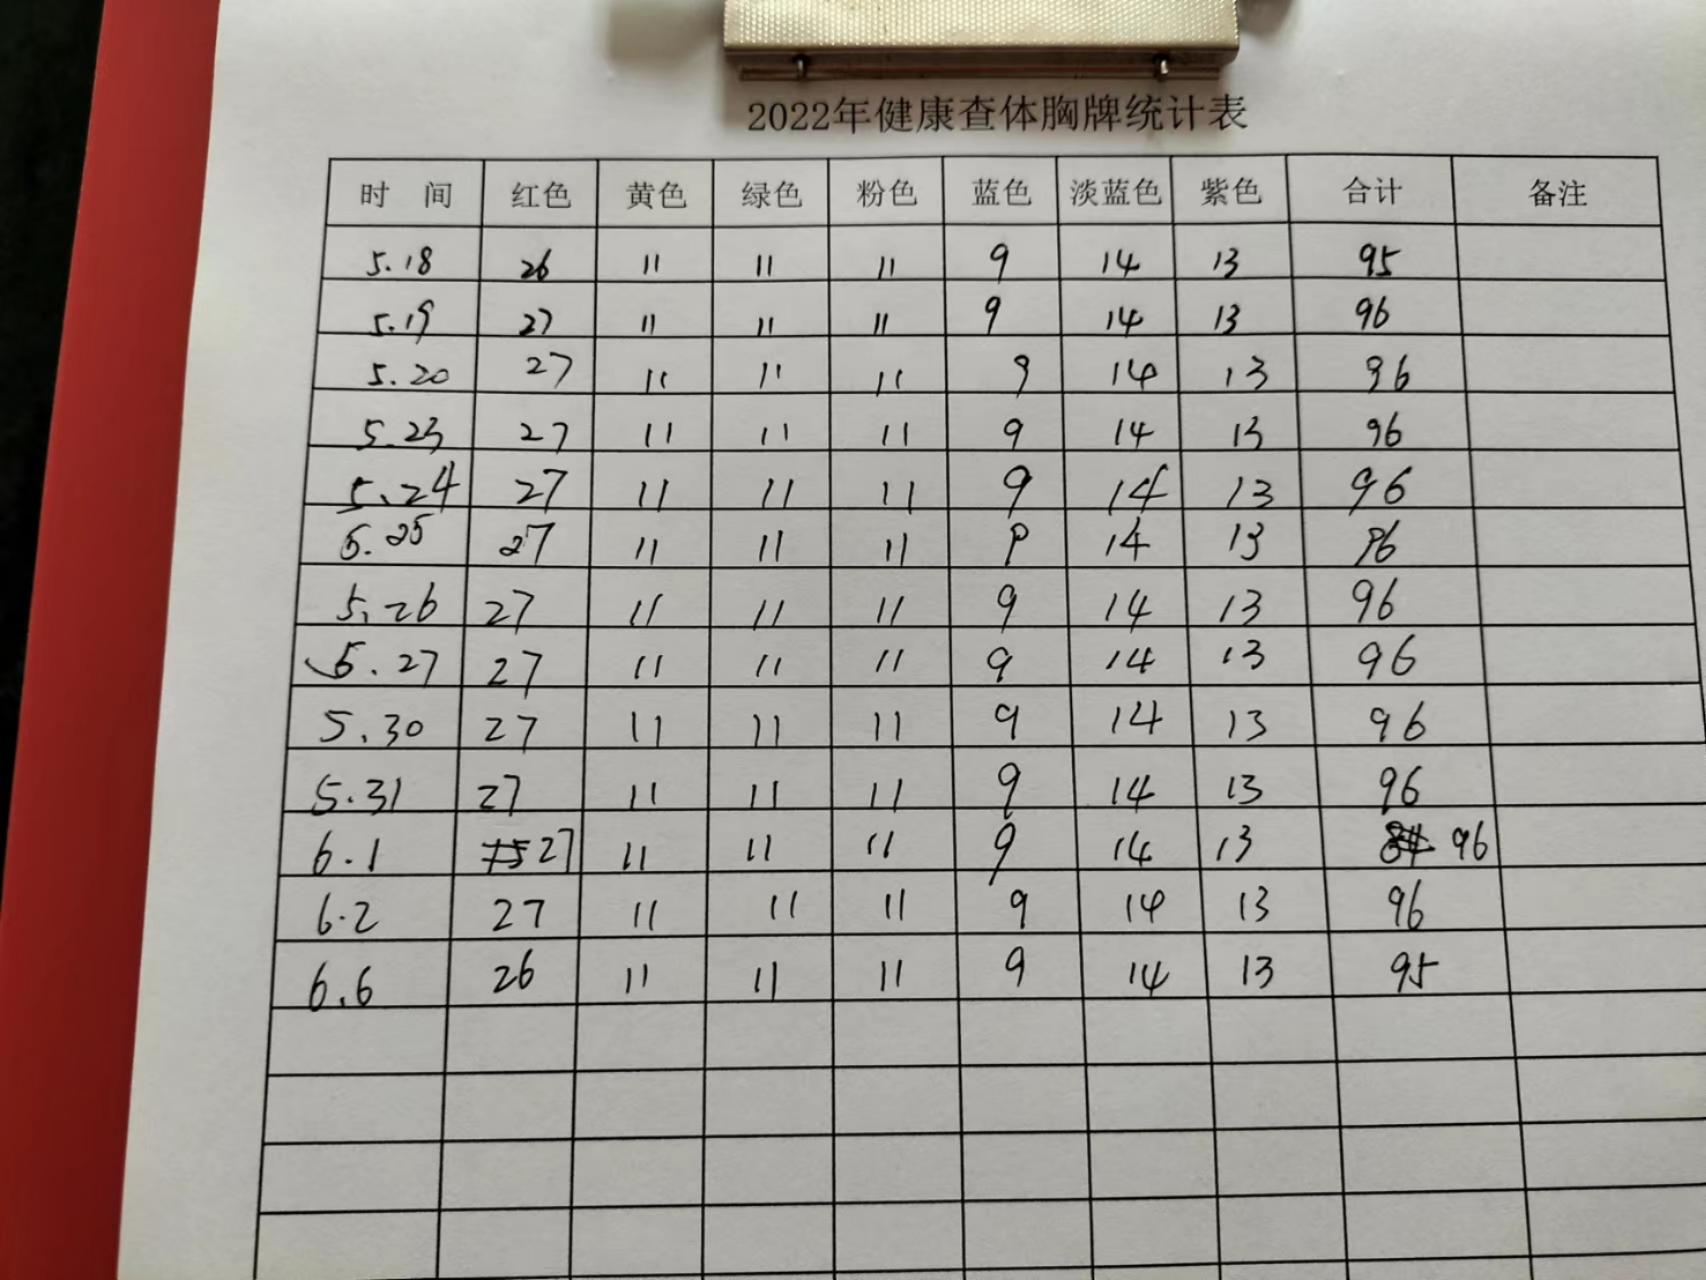 2022年健康查体胸牌统计表
时 间 红色 黄色 绿色 粉色 蓝色 淡蓝色 紫色 合计 备注
5.18 26 11 11 11 9 14 13 95
5.19 27 11 11 11 9 14 13 96
5.20 27 11 11 11 9 14 13 96
5.23 27 11 11 11 9 14 13 96
5.24 27 11 11 11 9 14 13 96
5.25 27 11 11 11 9 14 13 96
5.26 27 11 11 11 9 14 13 96
5.27 27 11 11 11 9 14 13 96
5.30 27 11 11 11 9 14 13 96
5.31 27 11 11 11 9 14 13 96
6.1 27 11 11 11 9 14 13 96
6.2 27 11 11 11 9 14 13 96
6.6 26 11 11 11 9 14 13 95